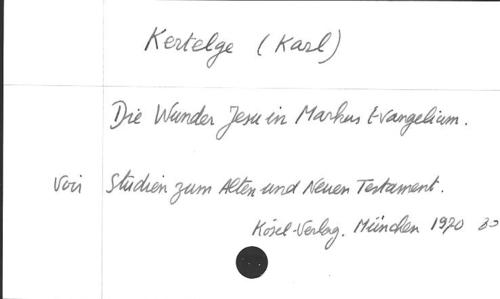 Kertelge (Karl)
Die Wunder Jesu in Markus Evangelium.
Voir Studien zum Alten und Neuen Testament.
Kösel-Verlag. München 1970